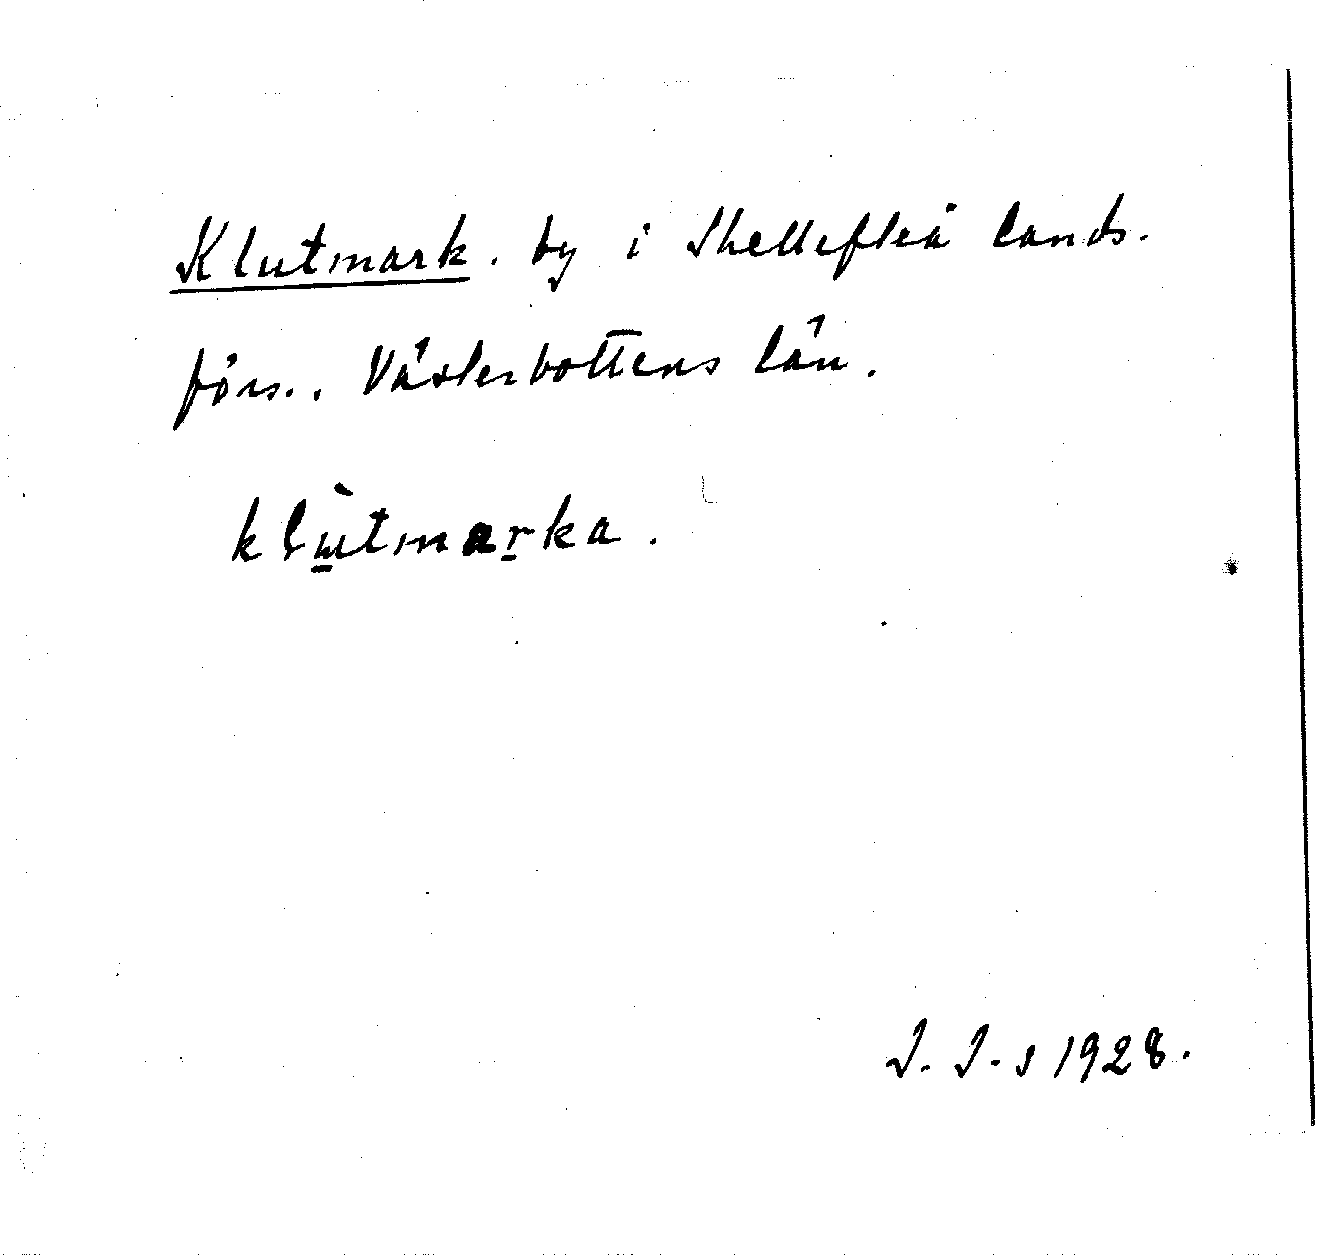 Klutmark. by i Skellefteå lands.
förs.. Västerbottens län.
klùtmarka.
J. J-s 1928.